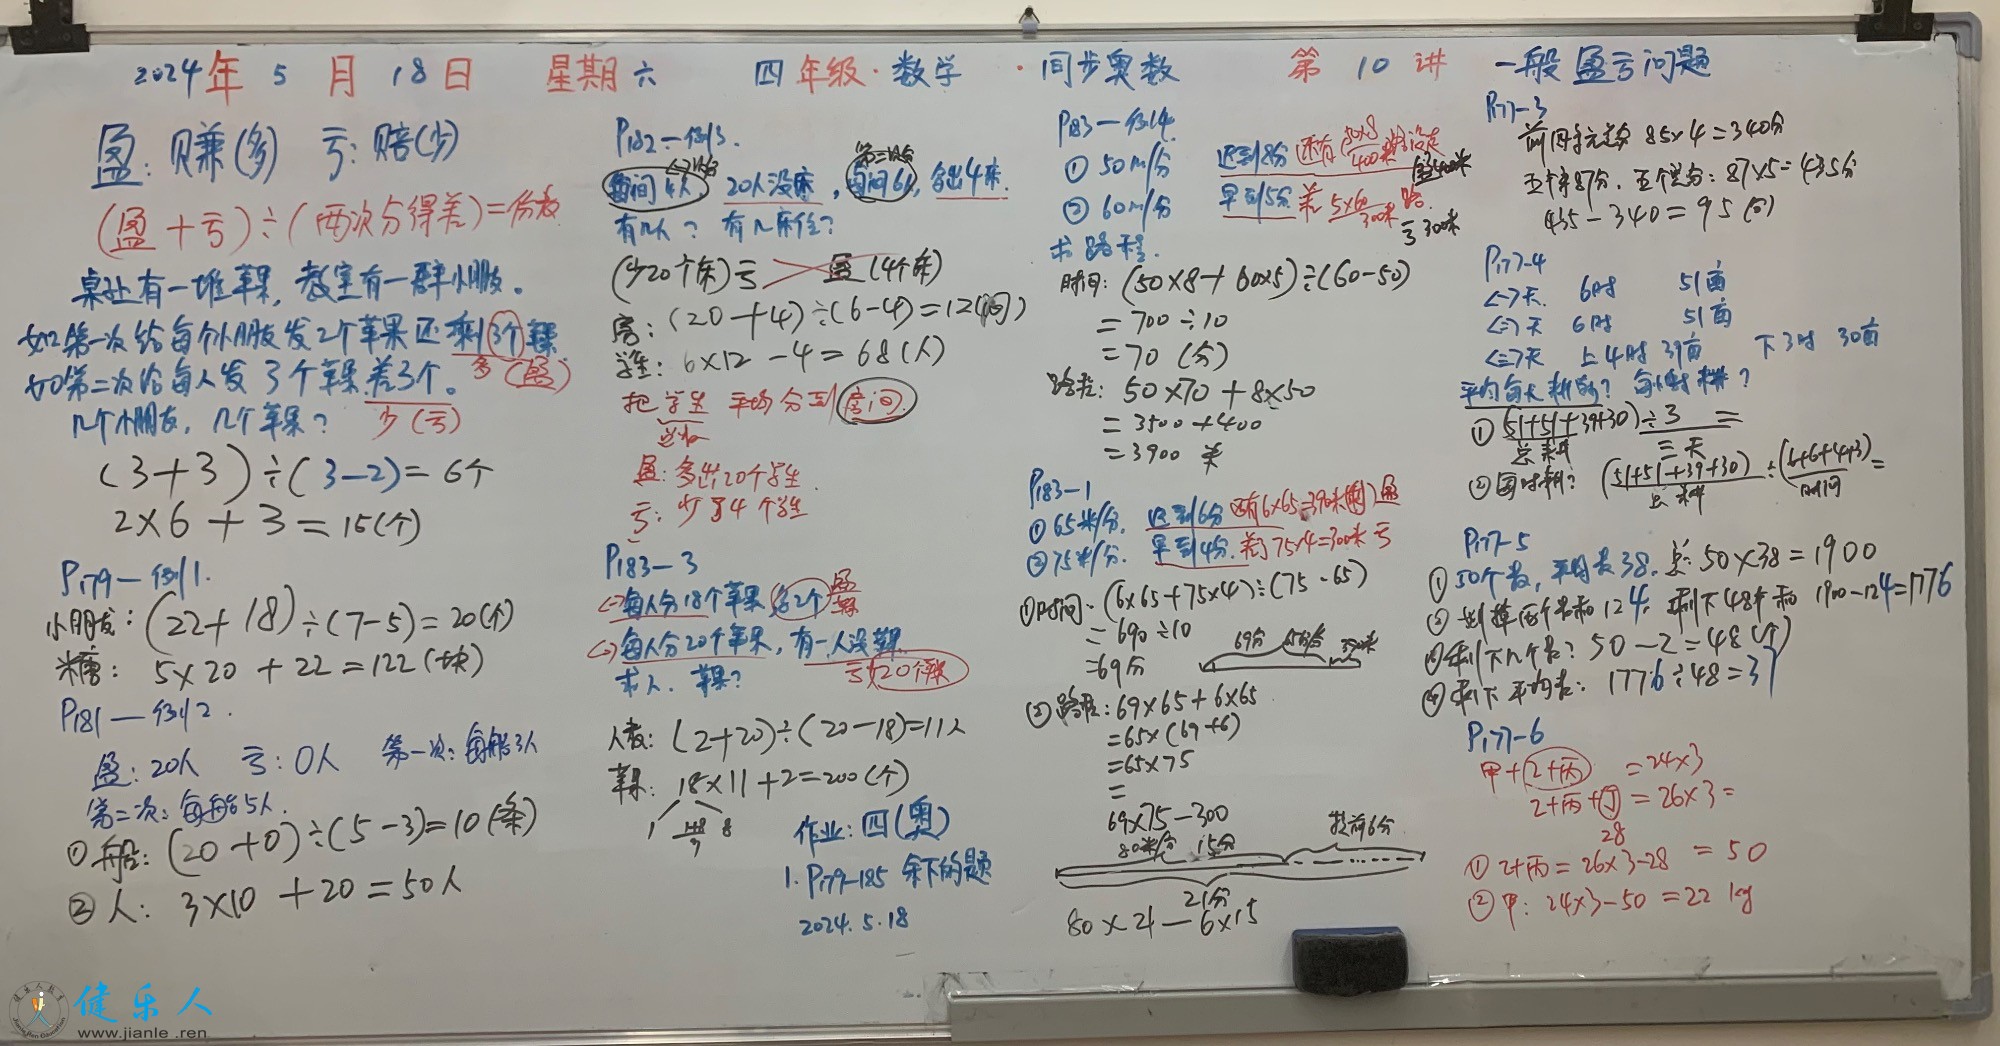 2024年 5月 18日 星期六 四年级·数学·同步奥数 第10讲 一般盈亏问题
盈:赚(多) 亏:赔(少)
(盈+亏)÷(两次分得差)=份数
桌上有一堆苹果,教室有一群小朋友。
如第一次给每个小朋友发2个苹果还剩3个苹果
多(盈)
如第二次给每人发3个苹果差3个。
少(亏)
几个小朋友,几个苹果?
(3+3)÷(3-2)=6个
2×6+3=15(个)
P179-例1.
小朋友:(22+18)÷(7-5)=20(个)
米糖:5×20+22=122(块)
P181-例2.
盈:20人 亏:0人 第一次:每船3人
第二次:每船5人.
①船:(20+0)÷(5-3)=10(条)
②人:3×10+20=50人
P182-例3.
每间4人 20人没床,每间6人,多出4床.
有几人?有几床位?
(少20个床)亏 盈(4个床)
房:(20+4)÷(6-4)=12(间)
学生:6×12-4=68(人)
把学生平均分到房间.
盈:多出20个学生.
亏:少了4个学生
P183-3
<一>每人分18个苹果多2个苹果 盈
<二>每人分20个苹果,有一人没苹果
亏20个苹果
求人.苹果?
人数:(2+20)÷(20-18)=11人
苹果:18×11+2=200(个)
作业:四(奥)
1.P179-185 余下的题
2024.5.18
P183-例4.
①50m/分 迟到8分 还有50×8 400米
②60m/分 早到5分 差5×60 300米 路.
亏300米
求路程.
时间:(50×8+60×5)÷(60-50)
=700÷10
=70(分)
路程:50×70+8×50
=3500+400
=3900米
P183-1
①65米/分.迟到6分 还有6×65=390米(剩)盈
②75米/分.早到4分.差了75×4=300米 亏
①时间:(6×65+75×4)÷(75-65)
=690÷10
=69分
②路程:69×65+6×65
=65×(69+6)
=65×75
=
69×75-300
80米/分 15分 提前6分
21分
80×21-6×15
P177-3
前四个总分 85×4=340分
五个平87分.五个总分:87×5=435分
435-340=95(分)
P177-4
<一>天 6时 51亩
<二>天 6时 51亩
<三>天 上4时 39亩 下3时 30亩
平均每天耕的?每小时耕?
①(51+51+39+30)÷3=
总耕 三天
②每时耕?(51+51+39+30)÷(6+6+4+3)=
总耕 时间
P177-5
①50个数,平均数38.总:50×38=1900
②划掉两个数和124.剩下48个和 1900-124=1776
③剩下几个数?50-2=48(个)
④剩下平均数:1776÷48=37
P177-6
甲+(乙+丙)=24×3
乙+丙+丁=26×3=
28
①乙+丙=26×3-28=50
②甲:24×3-50=22kg
健乐人
www.jianle.ren